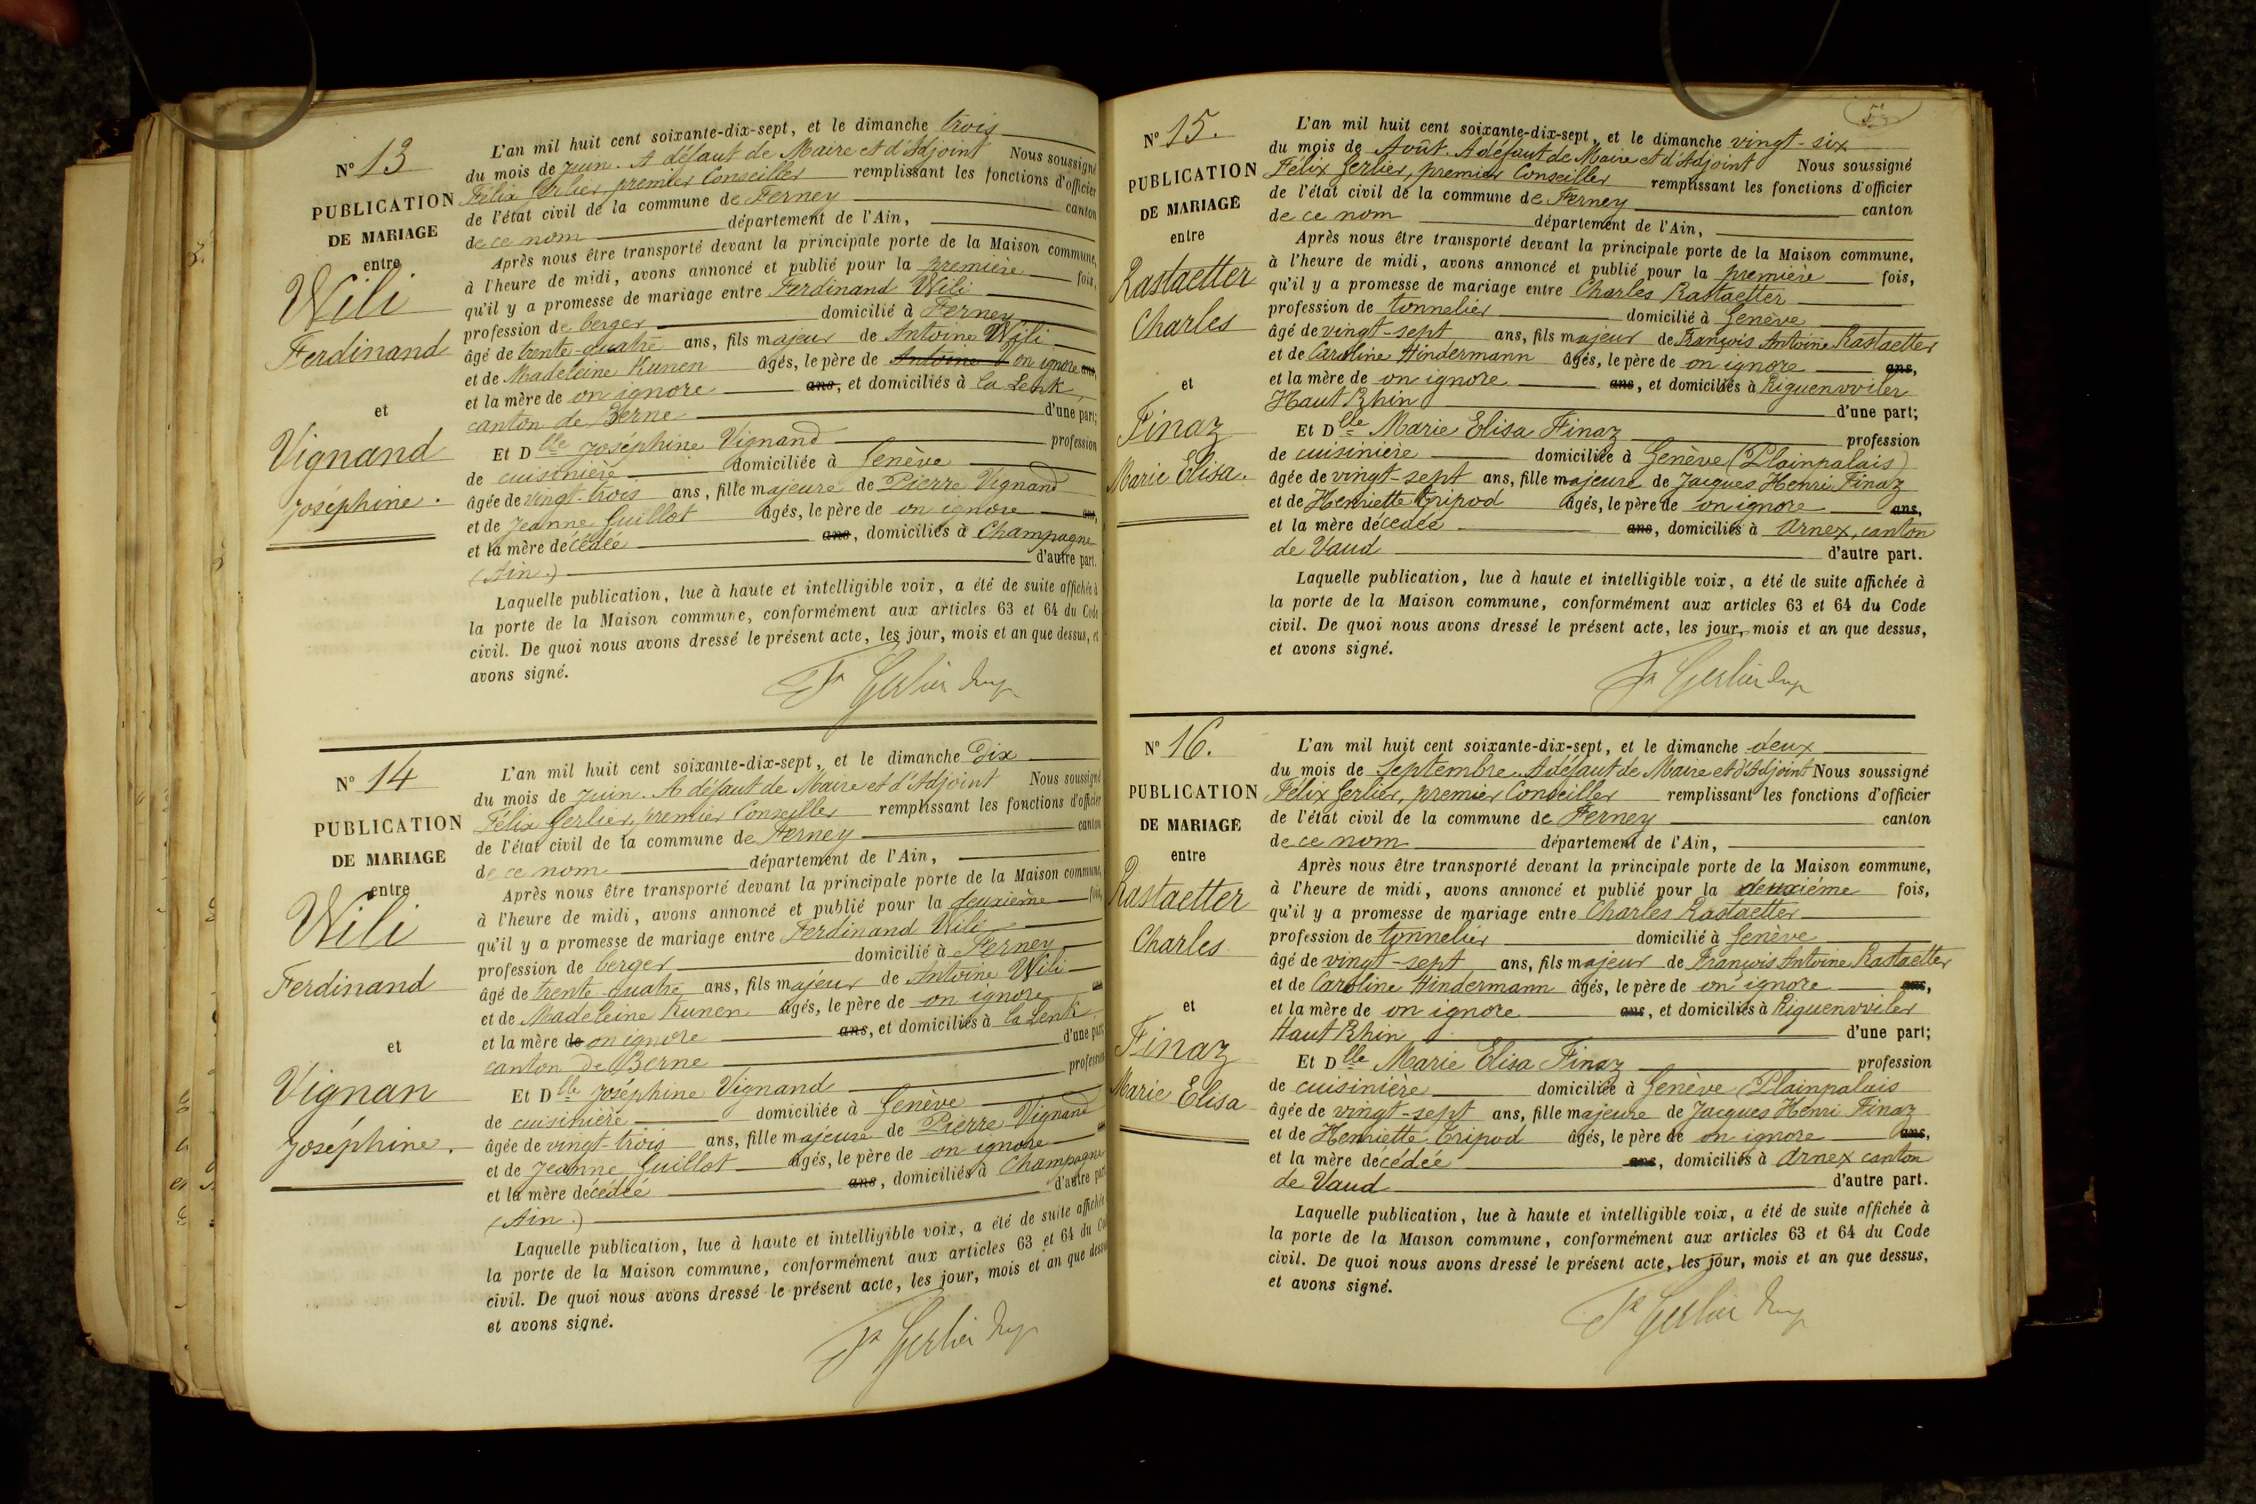 N° 13
PUBLICATION
DE MARIAGE
entre
Wili
Ferdinand
et
Vignand
Joséphine.
L'an mil huit cent soixante-dix-sept, et le dimanche trois
du mois de Juin. A défaut de Maire et d'Adjoint Nous soussigné
Félix Gerlier, premier Conseiller remplissant les fonctions d'officier
de l'état civil de la commune de Ferney canton
de ce nom département de l'Ain,
Après nous être transporté devant la principale porte de la Maison commune,
à l'heure de midi, avons annoncé et publié pour la première fois,
qu'il y a promesse de mariage entre Ferdinand Wili
profession de berger domicilié à Ferney
âgé de trente-quatre ans, fils majeur de Antoine Wili
et de Madeleine Kunen âgés, le père de Antoine on ignore ans,
et la mère de on ignore ans, et domiciliés à la Lenk,
canton de Berne d'une part;
Et Dlle Joséphine Vignand profession
de cuisinière domiciliée à Genève
âgée de vingt-trois ans, fille majeure de Pierre Vignand
et de Jeanne Guillot âgés, le père de on ignore ans,
et la mère décédée ans, domiciliés à Champagne
(Ain.) d'autre part.
Laquelle publication, lue à haute et intelligible voix, a été de suite affichée à
la porte de la Maison commune, conformément aux articles 63 et 64 du Code
civil. De quoi nous avons dressé le présent acte, les jour, mois et an que dessus, et
avons signé.
Gerlier
N° 14
PUBLICATION
DE MARIAGE
entre
Wili
Ferdinand
et
Vignan
Joséphine.
L'an mil huit cent soixante-dix-sept, et le dimanche Dix
du mois de Juin. A défaut de Maire et d'Adjoint Nous soussigné
Félix Gerlier, premier Conseiller remplissant les fonctions d'officier
de l'état civil de la commune de Ferney canton
de ce nom département de l'Ain,
Après nous être transporté devant la principale porte de la Maison commune,
à l'heure de midi, avons annoncé et publié pour la deuxième fois,
qu'il y a promesse de mariage entre Ferdinand Wili
profession de berger domicilié à Ferney
âgé de trente-quatre ans, fils majeur de Antoine Wili
et de Madeleine Kunen âgés, le père de on ignore ans
et la mère de on ignore ans, et domiciliés à la Lenk
canton de Berne d'une part
Et Dlle Joséphine Vignand profession
de cuisinière domiciliée à Genève
âgée de vingt-trois ans, fille majeure de Pierre Vignand
et de Jeanne Guillot âgés, le père de on ignore ans
et la mère décédée ans, domiciliés à Champagne
(Ain.) d'autre part
Laquelle publication, lue à haute et intelligible voix, a été de suite affichée
la porte de la Maison commune, conformément aux articles 63 et 64 du Code
civil. De quoi nous avons dressé le présent acte, les jour, mois et an que dessus
et avons signé.
Gerlier
N° 15.
PUBLICATION
DE MARIAGE
entre
Rastaetter
Charles
et
Finaz
Marie Elisa.
L'an mil huit cent soixante-dix-sept, et le dimanche vingt-six
du mois de Août. A défaut de Maire et d'Adjoint Nous soussigné
Félix Gerlier, premier Conseiller remplissant les fonctions d'officier
de l'état civil de la commune de Ferney canton
de ce nom département de l'Ain,
Après nous être transporté devant la principale porte de la Maison commune,
à l'heure de midi, avons annoncé et publié pour la première fois,
qu'il y a promesse de mariage entre Charles Rastaetter
profession de tonnelier domicilié à Genève
âgé de vingt-sept ans, fils majeur de François Antoine Rastaetter
et de Caroline Hindermann âgés, le père de on ignore ans,
et la mère de on ignore ans, et domiciliés à Riguenvviler
Haut Rhin d'une part;
Et Dlle Marie Elisa Finaz profession
de cuisinière domiciliée à Genève (Plainpalais)
âgée de vingt-sept ans, fille majeure de Jacques Henri Finaz
et de Henriette Tripod âgés, le père de on ignore ans,
et la mère décédée ans, domiciliés à Arnex, canton
de Vaud d'autre part.
Laquelle publication, lue à haute et intelligible voix, a été de suite affichée à
la porte de la Maison commune, conformément aux articles 63 et 64 du Code
civil. De quoi nous avons dressé le présent acte, les jour, mois et an que dessus,
et avons signé.
Gerlier
N° 16.
PUBLICATION
DE MARIAGE
entre
Rastaetter
Charles
et
Finaz
Marie Elisa
L'an mil huit cent soixante-dix-sept, et le dimanche deux
du mois de Septembre. A défaut de Maire et d'Adjoint Nous soussigné
Félix Gerlier, premier Conseiller remplissant les fonctions d'officier
de l'état civil de la commune de Ferney canton
de ce nom département de l'Ain,
Après nous être transporté devant la principale porte de la Maison commune,
à l'heure de midi, avons annoncé et publié pour la deuxième fois,
qu'il y a promesse de mariage entre Charles Rastaetter
profession de tonnelier domicilié à Genève
âgé de vingt-sept ans, fils majeur de François Antoine Rastaetter
et de Caroline Hindermann âgés, le père de on ignore ans,
et la mère de on ignore ans, et domiciliés à Riguenvviler
Haut Rhin d'une part;
Et Dlle Marie Elisa Finaz profession
de cuisinière domiciliée à Genève (Plainpalais
âgée de vingt-sept ans, fille majeure de Jacques Henri Finaz
et de Henriette Tripod âgés, le père de on ignore ans,
et la mère décédée ans, domiciliés à Arnex canton
de Vaud d'autre part.
Laquelle publication, lue à haute et intelligible voix, a été de suite affichée à
la porte de la Maison commune, conformément aux articles 63 et 64 du Code
civil. De quoi nous avons dressé le présent acte, les jour, mois et an que dessus,
et avons signé.
Gerlier